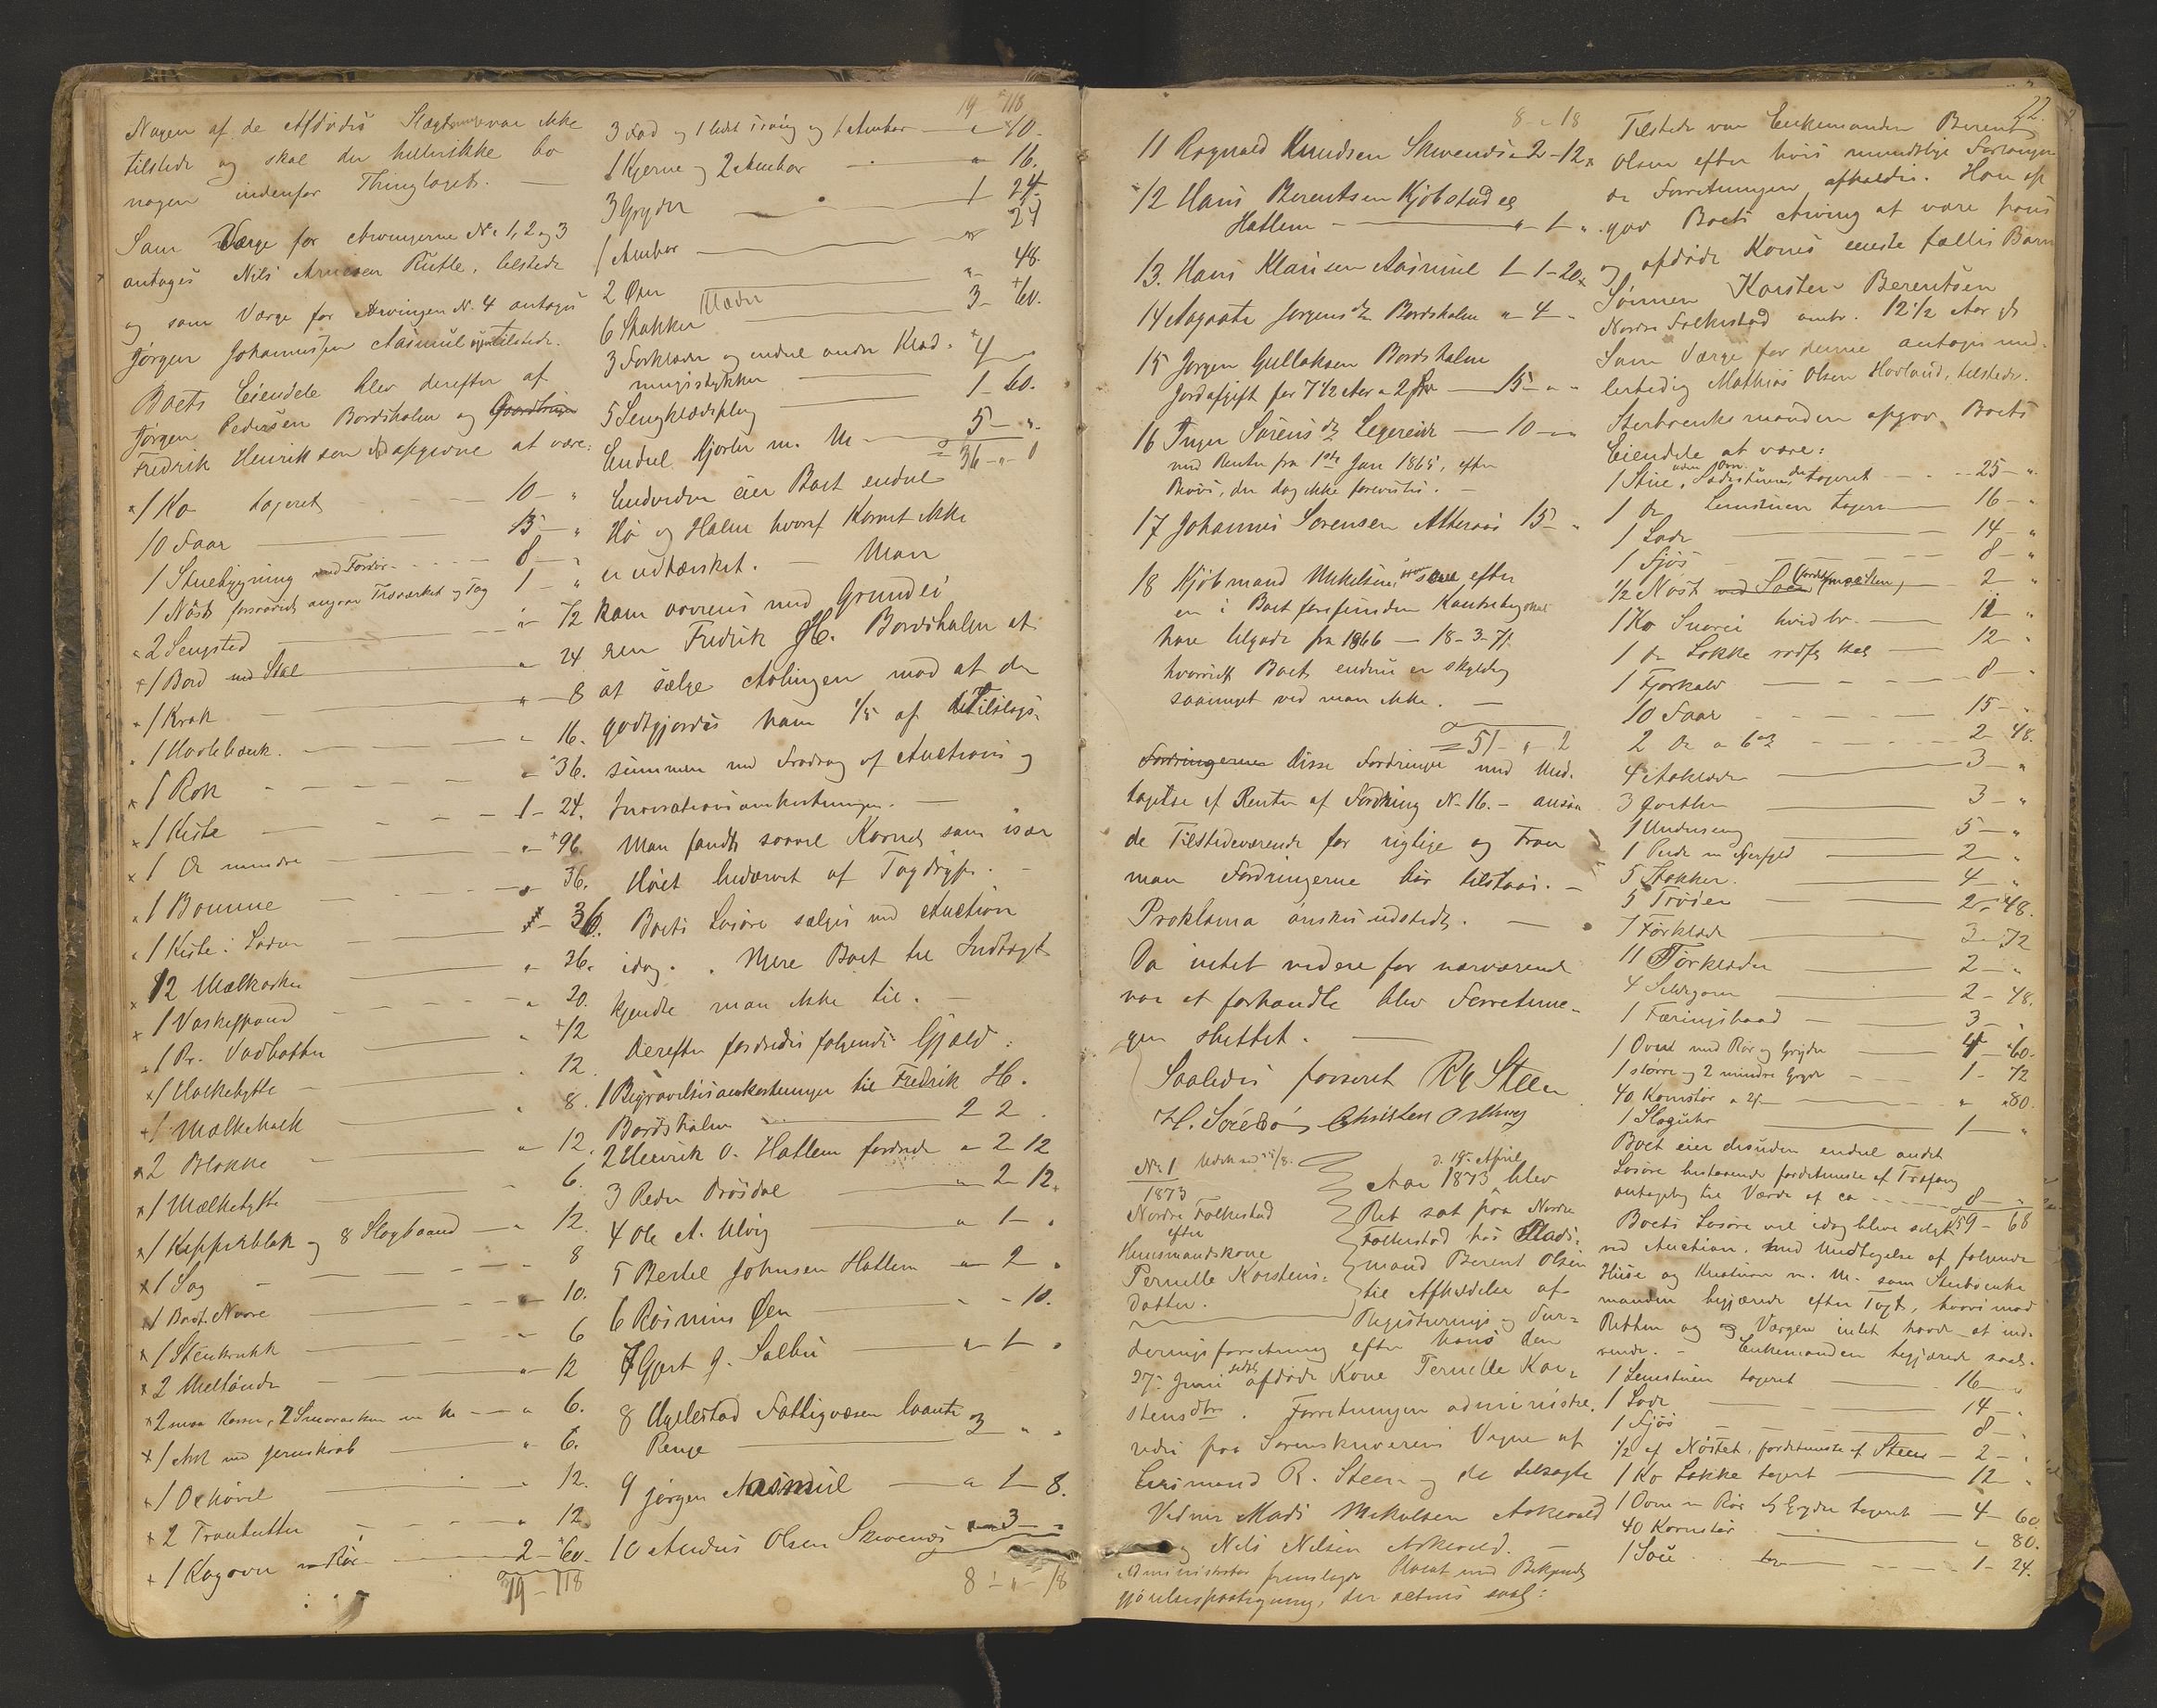 Nogen af de Afdødes Slægtninge var ikke
tilstede og skal der hellerikke bo
nogen indenfor Thinglaget. —
Som Værge for Arvingerne No 1, 2 og 3
antoges Nils Arnesen Rutle, tilstede
og som Værge for Arvingen N. 4 antoges
Jørgen Johannessen Aasmul tilstede.
Boets Eiendele blev derefter af
Jørgen Pedersen Bordsholm og
Fredrik Henriksen opgivne at være:
1 Ko taxeret 10 – "
10 Faar 15 – "
1 Stuebygning 8 – "
1 Nøst 1 – "
2 Sengsted " 72
1 Bord med Stol " 24
1 Krak " 8
1 Hovlebænk " 16.
1 Rok " 36.
1 Kiste 1 – 24.
1 Do mindre " 96.
1 Bomme " 36.
1 Kiste i Laden " 36.
12 Mælkorker " 36.
1 Vaskespand " 20.
1 Pr. Vadbotter " 12
1 Mælkebøtte " 12.
" 8.
2 Blokke " 12.
1 Mælkebøtte " 6.
1 og 8 Slagbaand " 12.
1 Sag " 8
1 Navre " 10.
1 Stenkrukke " 6
2 " 12
" 6.
1 med Jernskrab " 6.
1 Øxhøvel " 12.
2 " 12.
1 Kogovn med Rør 2 – 60.
79 – 118
79 118
3 Fad og 1 " 40.
1 Kjerne og 2 Ambar " 16.
3 Gryder 1 24
1 Ambar " 24
2 Øxer " 48.
6 Stakker 3 – 60.
3 Forklæder og endel andre Klæd-
ningsstykker 4
5 Sengklædsplag 1 – 60.
Endel Kjørler m. M. 5 – "
36 – " – 0
Endvidere eier Boet endel
Hø og Halm hvoraf Kornet ikke
er udtærsket. — Man
kom overens med Grundei-
eren Fredrik H. Bordsholm at
at sælge Avlingen mod at der
godtgjordes ham 1/5 af Tilslags-
summen med Fradrag af Auctions og
Incassationsomkostninger. —
Man fandt saavel Kornet som især
Høet bedærvet af Tagdryp. —
Boets Løsøre sælges ved Auction
idag. Mere Boet til Indtægt
kjendte man ikke til.
Derefter fordredes følgende Gjæld:
1 Begravelsesomkostninger til Fredrik H.
Bordsholm 2 2
2 Henrik O. Hatlem fordrede " 2 12
3 Peder Drøsdal " 2 – 12
4 Ole A. Ulvig " 1 – "
5 Bertel Johnsen Hatlem " 2 "
6 Rasmus Øen " – 10.
7 Gjert J. Salbu " 1 – "
8 Ugelestad Fattigvæsen laante
Penge 3 " "
9 Jørgen Aasmul " 1 – 8.
10 Anders Olsen Skivenes " 3 –
8 – " – 18
8 – " 18
11 Ragnald Knudsen Skivenes " 2 – 12
12 Hans Berentsen Kjøbstad eg
Hatlem " 1 "
13. Hans Klausen Aasmul 1 – 20
14 Aagaate Jørgensdtr Bordsholm " 4 "
15 Jørgen Gullaksen Bordsholm
Jordafgift for 7 1/2 Aar a 2 15 – "
16 Inger Sørensdtr Legereide 10 – "
med Renter fra 1ste Jan 1865, efter
Bevis, der dog ikke forevistes. —
17 Johannes Sørensen Atteraas 15 – "
18 Kjøbmand Mikelsen, som efter
en i Boet forefunden Kontrabog skal
have tilgode fra 1866 — 18-3-71.
hvorvidt Boet endnu er skyldig
saameget ved man ikke. —
= 51 – " 2
Fordringerne Disse Fordringer med Und-
tagelse af Renter af Fordring No 16. – ansaa
de Tilstedeværende for rigtige og Troer
man Fordringerne bør tilstaaes. —
Proklama ønskes udstedt. —
Da intet videre for nærværende
var at forhandle blev Forretnin-
gen sluttet. —
Saaledes passeret R Steen
H. Sørebø Christen O Ulvig
No 1
1873
Nordre Folkestad
efter
Huusmandskone
Pernille Korstens-
datter.
d. 19de April
Aar 1873 blev
Ret sat paa Nordre
Folkestad hos Plads-
mand Berent Olsen
til Afholdelse af
Registrerings og Vur-
deringsforretning efter hans den
27de Juni sidst afdøde Kone Pernille Kor-
stensdtr. Forretningen administre-
redes paa Sorenskriverens Vegne af
Lensmand R. Steen og de tilsagte
Vidner Mads Mikelsen Askevold
og Nils Nilsen Askevold. —
Administrator fremlagde Udkast med Bekjendt-
gjørelsespaategning, der acteres saal:
22.
Tilstede var Enkemanden Berent
Olsen efter hvis mundtlige Forlangen
er Forretningen afholdes. Han op-
gav Boets Arving at være hans
og afdøde Kones eneste fælles Barn
Sønnen Korsten Berentsen
Nordre Folkestad omtr. 12 1/2 Aar gl
Som Værge for denne antoges mid-
lertidig Mathias Olsen Hovland, tilstede.
Sterboenkemanden opgav Boets
Eiendele at være:
1 Stue uden Ovn, taxeret 25 – "
1 do Lemstuen taxeret 16 – "
1 Lade 14 – "
1 Fjøs 8 – "
1/2 Nøst 2 – "
1 Ko Snarei hvidbr. 11 "
1 do Løkke 12 – "
1 Fjorkalv 8 – "
10 Faar 15 – "
2 Do a 2 – 48.
4 Aaklæder 3 – "
3 3 – "
1 Underseng 5 – "
1 Pude m Fjerfyld 2 – "
5 Stakker 4 – "
5 Trøier 2 – 48.
7 Forklæde 3 – 72
11 Tørklæder 2 – "
4 Sildegarn 2 – 48.
1 Færingsbaad 3 – "
1 Ovn med Rør og Gryder 4 – 60.
1 større og 2 mindre Gryder 1 – 72
40 Kornstør a 2 " 80.
1 Slaguhr 1 – "
Boet eier desuden endel andet
Løsøre bestaaende fordetmeste af Trafang
antagelig til Værdi af ca 8 – "
159 – 68
Boets Løsøre vil idag blive solgt
ved Auction, med Undtagelse af følgende
Huse og Kreaturer m. M. som Sterboenke-
manden begjærede efter Taxt, hvorimod
Retten og Værgen intet havde at ind-
vende. – Enkemanden begjærede saal:
1 Lemstuen taxeret 16 – "
1 Lade 14 – "
1 Fjøs 8 – "
1/2 af Nøstet, fordetmeste af Steen 2 – "
1 Ko Løkke taxeret 12 "
1 Ovn m Rør og Gryder taxeret 4 – 60.
40 Kornstør " 80.
1 Sou 1 – 24.